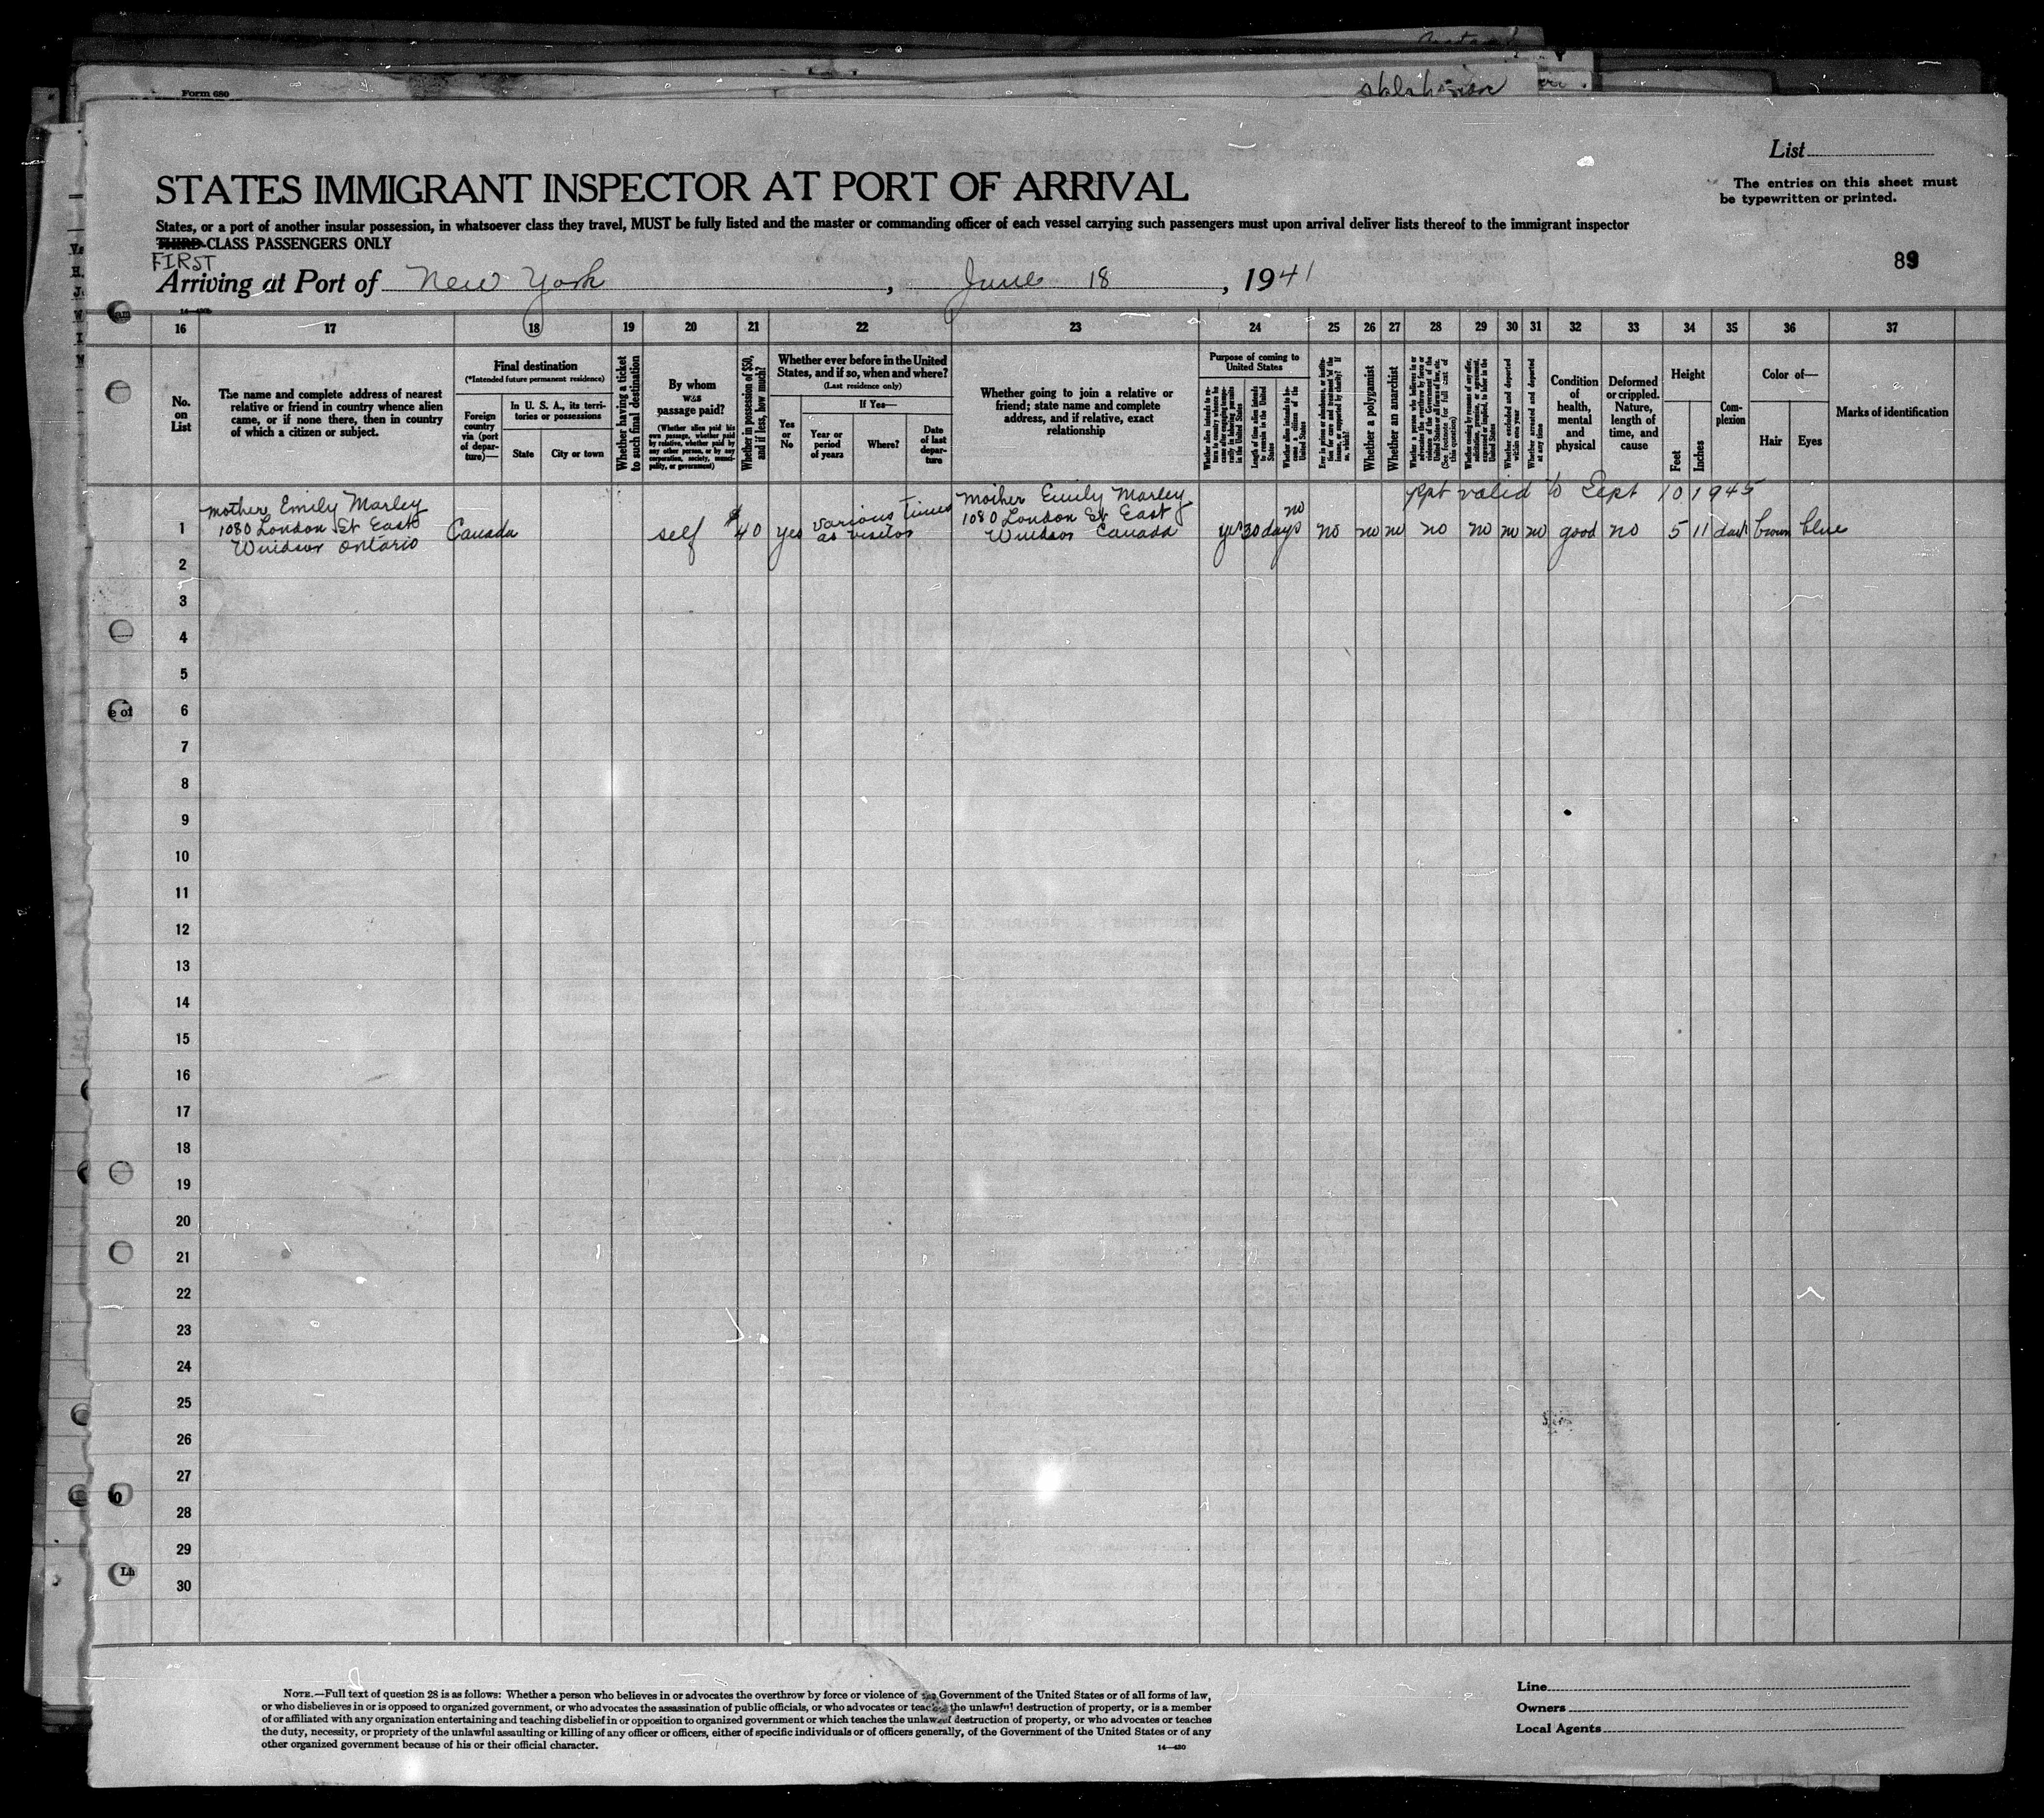 Form 680
List
STATES IMMIGRANT INSPECTOR AT PORT OF ARRIVAL
The entries on this sheet must
be typewritten or printed.
States, or a port of another insular possession, in whatsoever class they travel, MUST be fully listed and the master or commanding officer of each vessel carrying such passengers must upon arrival deliver lists thereof to the immigrant inspector
THIRD-CLASS PASSENGERS ONLY
FIRST
89
Arriving at Port of New York, June 18, 1941
16 17 18 19 20 21 22 23 24 25 26 27 28 29 30 31 32 33 34 35 36 37
No.
on
List
The name and complete address of nearest
relative or friend in country whence alien
came, or if none there, then in country
of which a citizen or subject.
Final destination
(*Intended future permanent residence)
Foreign
country
via (port
of depar-
ture)—
In U. S. A., its terri-
tories or possessions
State
City or town
Whether having a ticket
to such final destination
By whom
was
passage paid?
(Whether alien paid his
own passage, whether paid
by relative, whether paid by
any other person, or by any
corporation, society, munici-
pality, or government)
Whether in possession of $50,
and if less, how much?
Whether ever before in the United
States, and if so, when and where?
(Last residence only)
Yes
or
No
If Yes—
Year or
period
of years
Where?
Date
of last
depar-
ture
Whether going to join a relative or
friend; state name and complete
address, and if relative, exact
relationship
Purpose of coming to
United States
Whether alien intends to re-
turn to country whence he
came after engaging tempo-
rarily in laboring pursuits
in the United States
Length of time alien intends
to remain in the United
States
Whether alien intends to be-
come a citizen of the
United States
Ever in prison or almshouse, or institu-
tion for care and treatment of the
insane, or supported by charity? If
so, which?
Whether a polygamist
Whether an anarchist
Whether a person who believes in or
advocates the overthrow by force or
violence of the Government of the
United States or all forms of law, etc.
(See footnote for full text of
this question)
Whether coming by reason of any offer,
solicitation, promise, or agreement,
expressed or implied, to labor in the
United States
Whether excluded and deported
within one year
Whether arrested and deported
at any time
Condition
of
health,
mental
and
physical
Deformed
or crippled.
Nature,
length of
time, and
cause
Height
Feet
Inches
Com-
plexion
Color of—
Hair
Eyes
Marks of identification
mother Emily Marley
1080 London St East
Windsor Ontario
1
Canada
self
$40
yes
various times
as visitor
mother Emily Marley
1080 London St East
Windsor Canada
ppt valid to Sept 10 1945
yes 30 days no no no no no no no no good no 5 11 dark brown blue
2
3
4
5
6
7
8
9
10
11
12
13
14
15
16
17
18
19
20
21
22
23
24
25
26
27
28
29
30
NOTE.—Full text of question 28 is as follows: Whether a person who believes in or advocates the overthrow by force or violence of the Government of the United States or of all forms of law,
or who disbelieves in or is opposed to organized government, or who advocates the assassination of public officials, or who advocates or teaches the unlawful destruction of property, or is a member
of or affiliated with any organization entertaining and teaching disbelief in or opposition to organized government or which teaches the unlawful destruction of property, or who advocates or teaches
the duty, necessity, or propriety of the unlawful assaulting or killing of any officer or officers, either of specific individuals or of officers generally, of the Government of the United States or of any
other organized government because of his or their official character.
14—430
Line
Owners
Local Agents